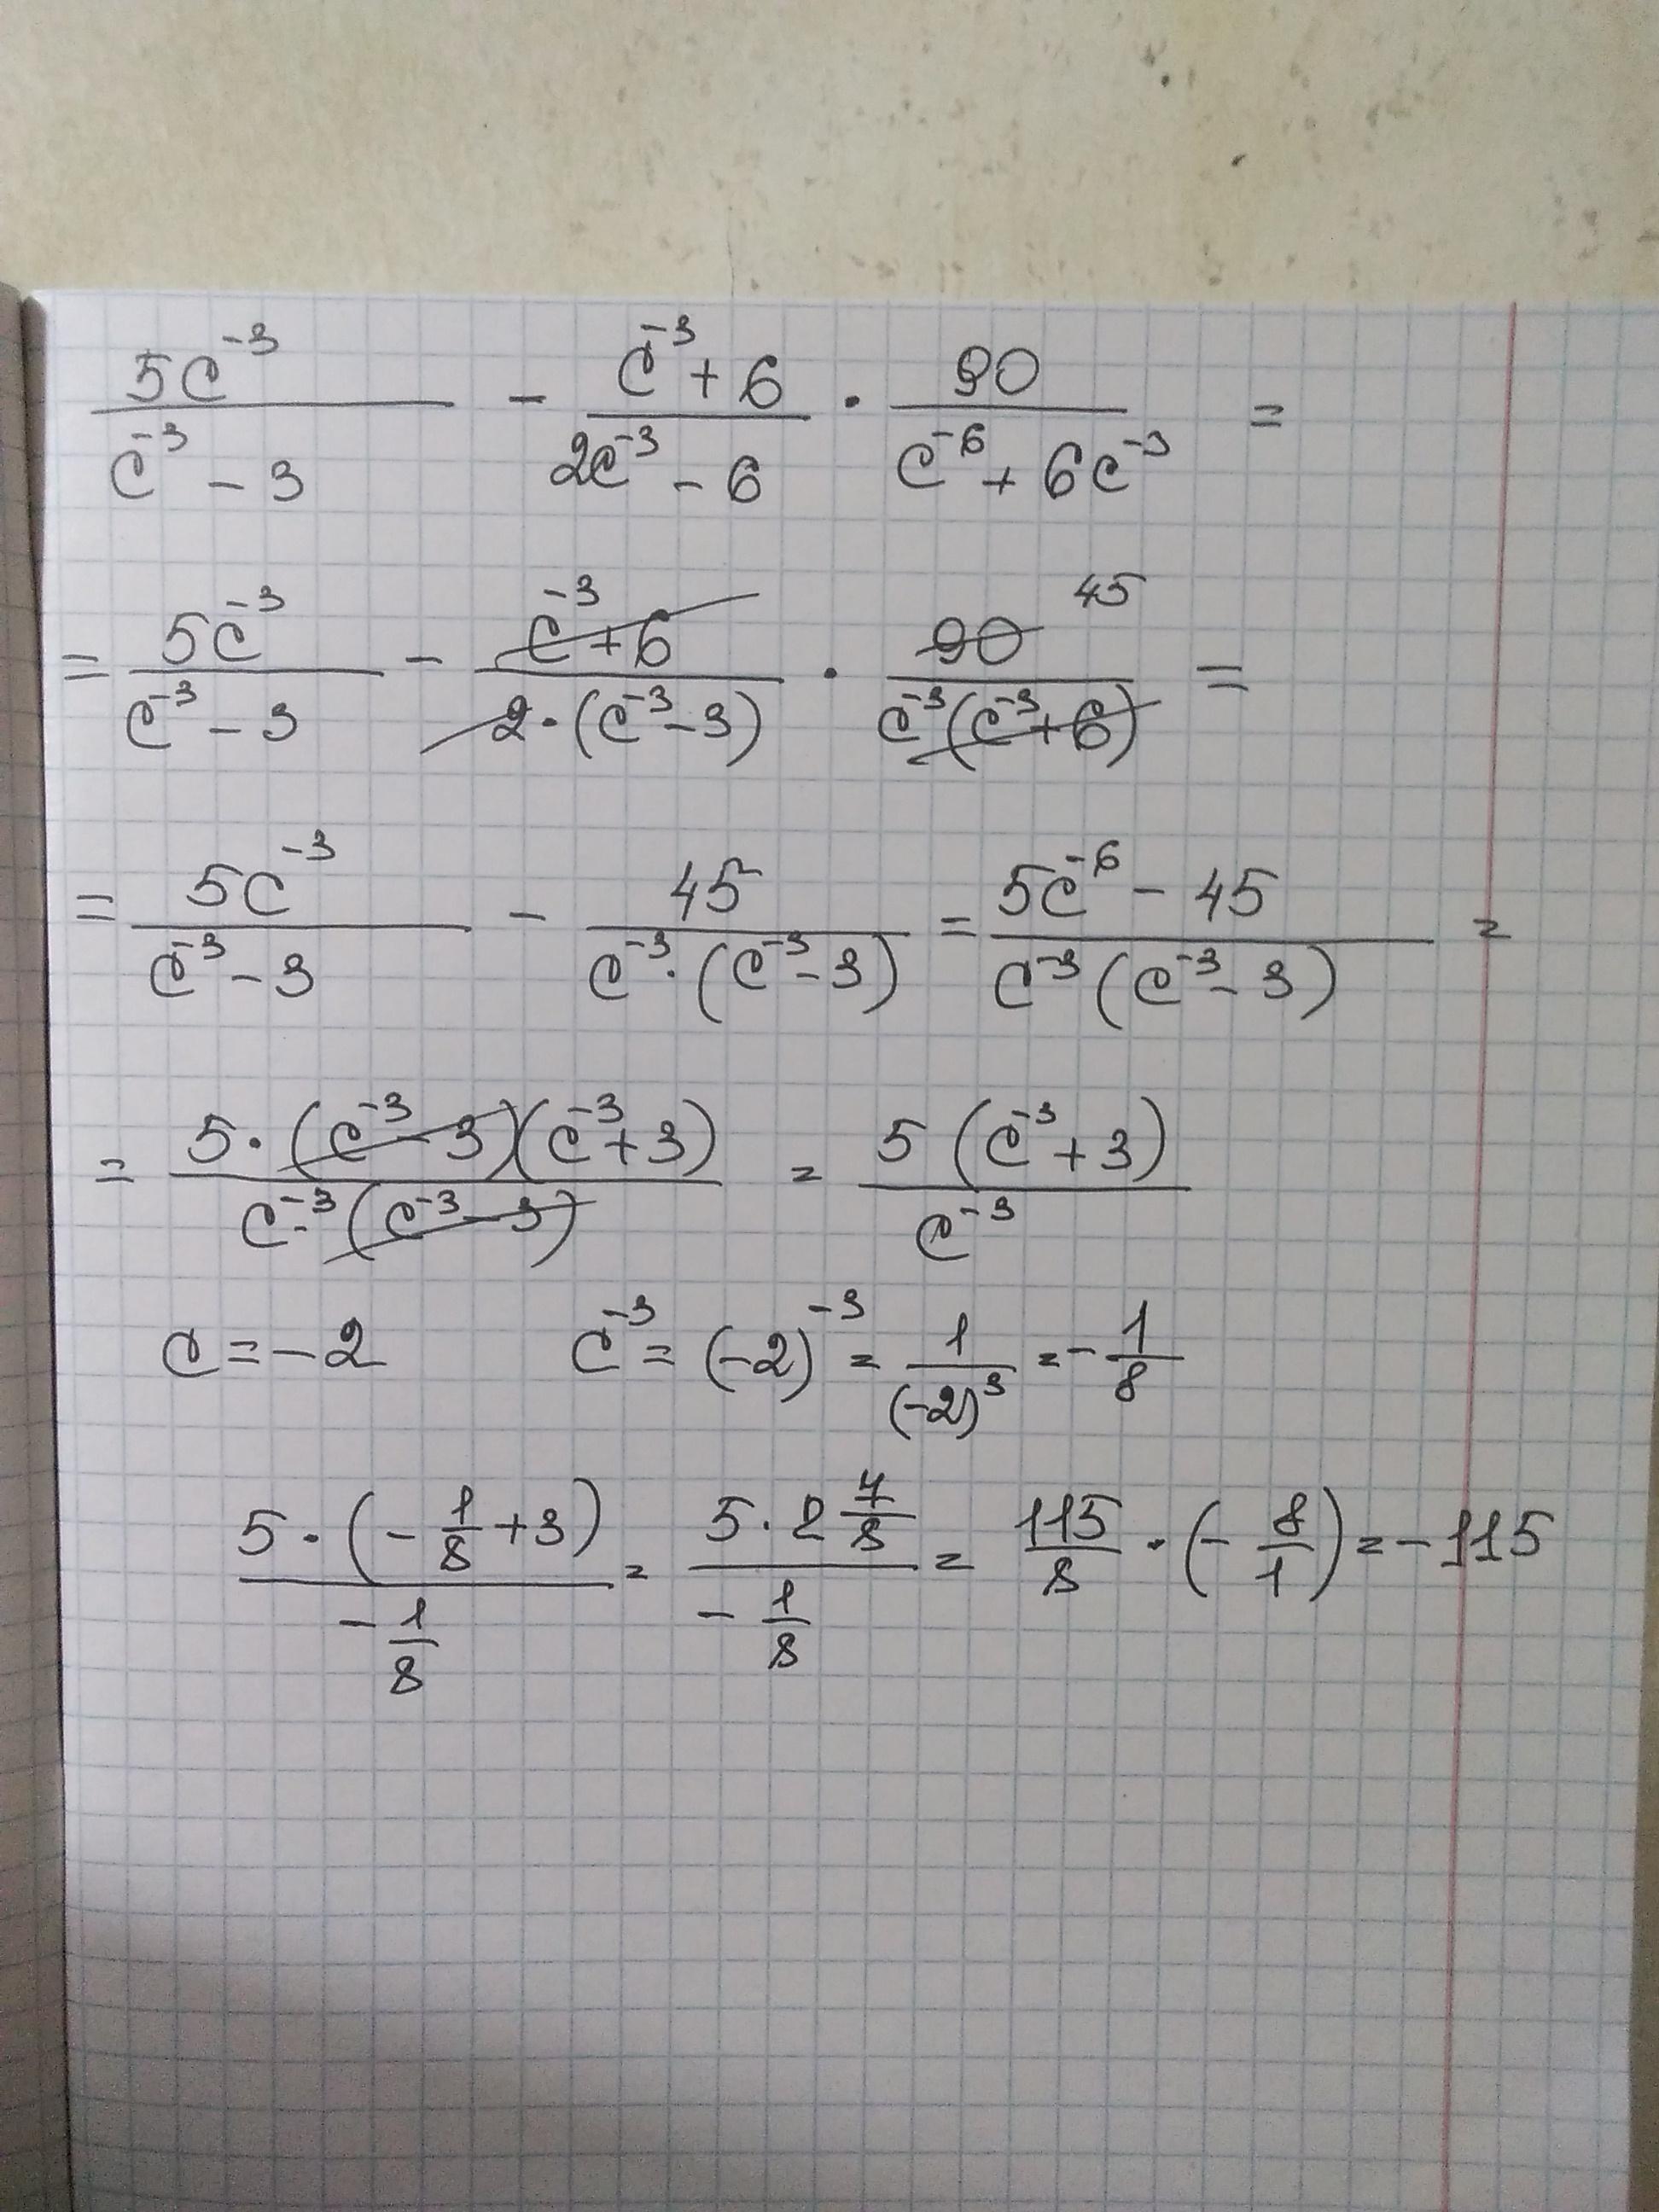 5c⁻³/(c⁻³ − 3) − (c⁻³ + 6)/(2c⁻³ − 6) · 90/(c⁻⁶ + 6c⁻³) =
= 5c⁻³/(c⁻³ − 3) − (c⁻³ + 6)/(2·(c⁻³ − 3)) · 90 45/(c⁻³(c⁻³ + 6)) =
= 5c⁻³/(c⁻³ − 3) − 45/(c⁻³·(c⁻³ − 3)) = (5c⁻⁶ − 45)/(c⁻³(c⁻³ − 3)) =
= 5·(c⁻³ − 3)(c⁻³ + 3)/(c⁻³(c⁻³ − 3)) = 5(c⁻³ + 3)/c⁻³
c = −2 c⁻³ = (−2)⁻³ = 1/(−2)³ = −1/8
5·(−1/8 + 3)/(−1/8) = 5·2 7/8/(−1/8) = 115/8·(−8/1) = −115